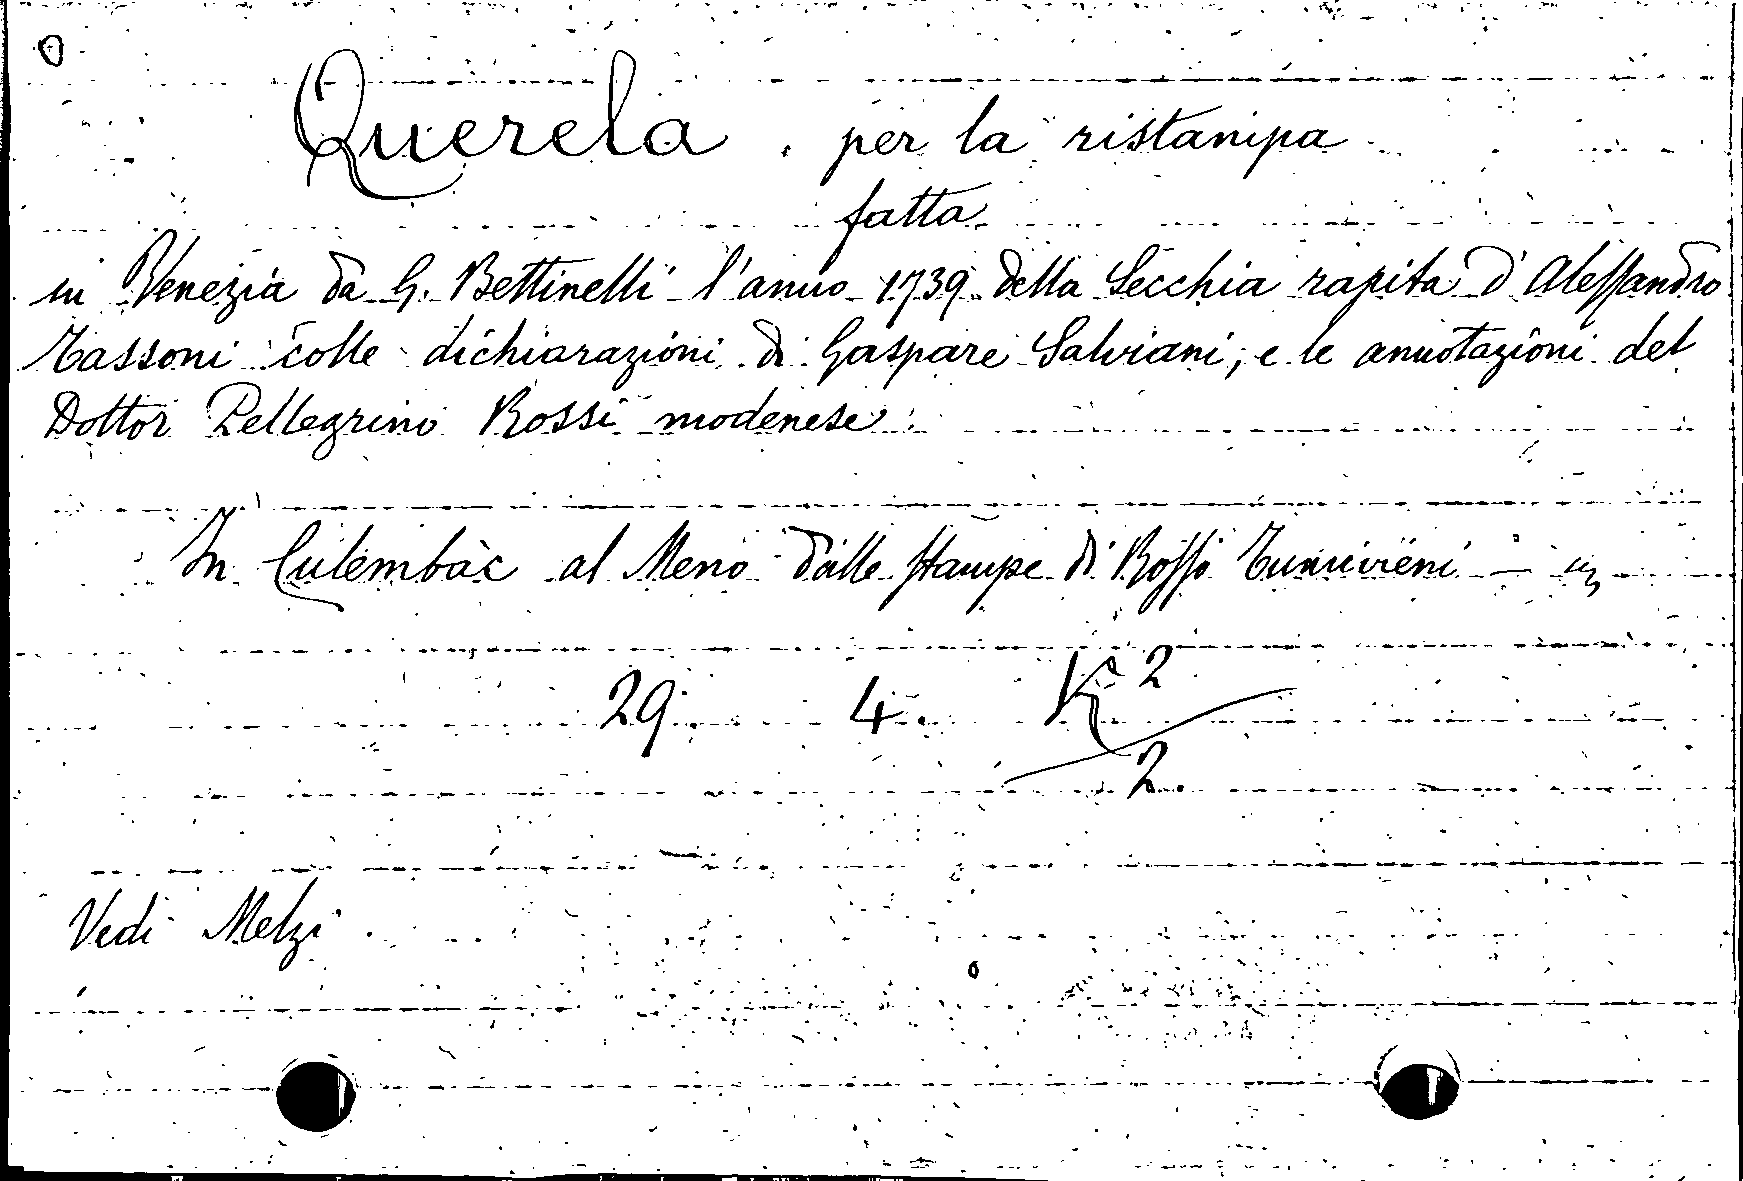 Querela per la ristampa
fatta
in Venezia da G. Bettinelli l'anno 1739 della Secchia rapita d'Alessandro
Tassoni colle dichiarazioni di Gaspare Salviani, e le annotazioni del
Dottor Pellegrino Rossi modenese
In Culembàc al Meno dalle stampe di Rosso
29 4. K 2
2.
Vedi Melzi